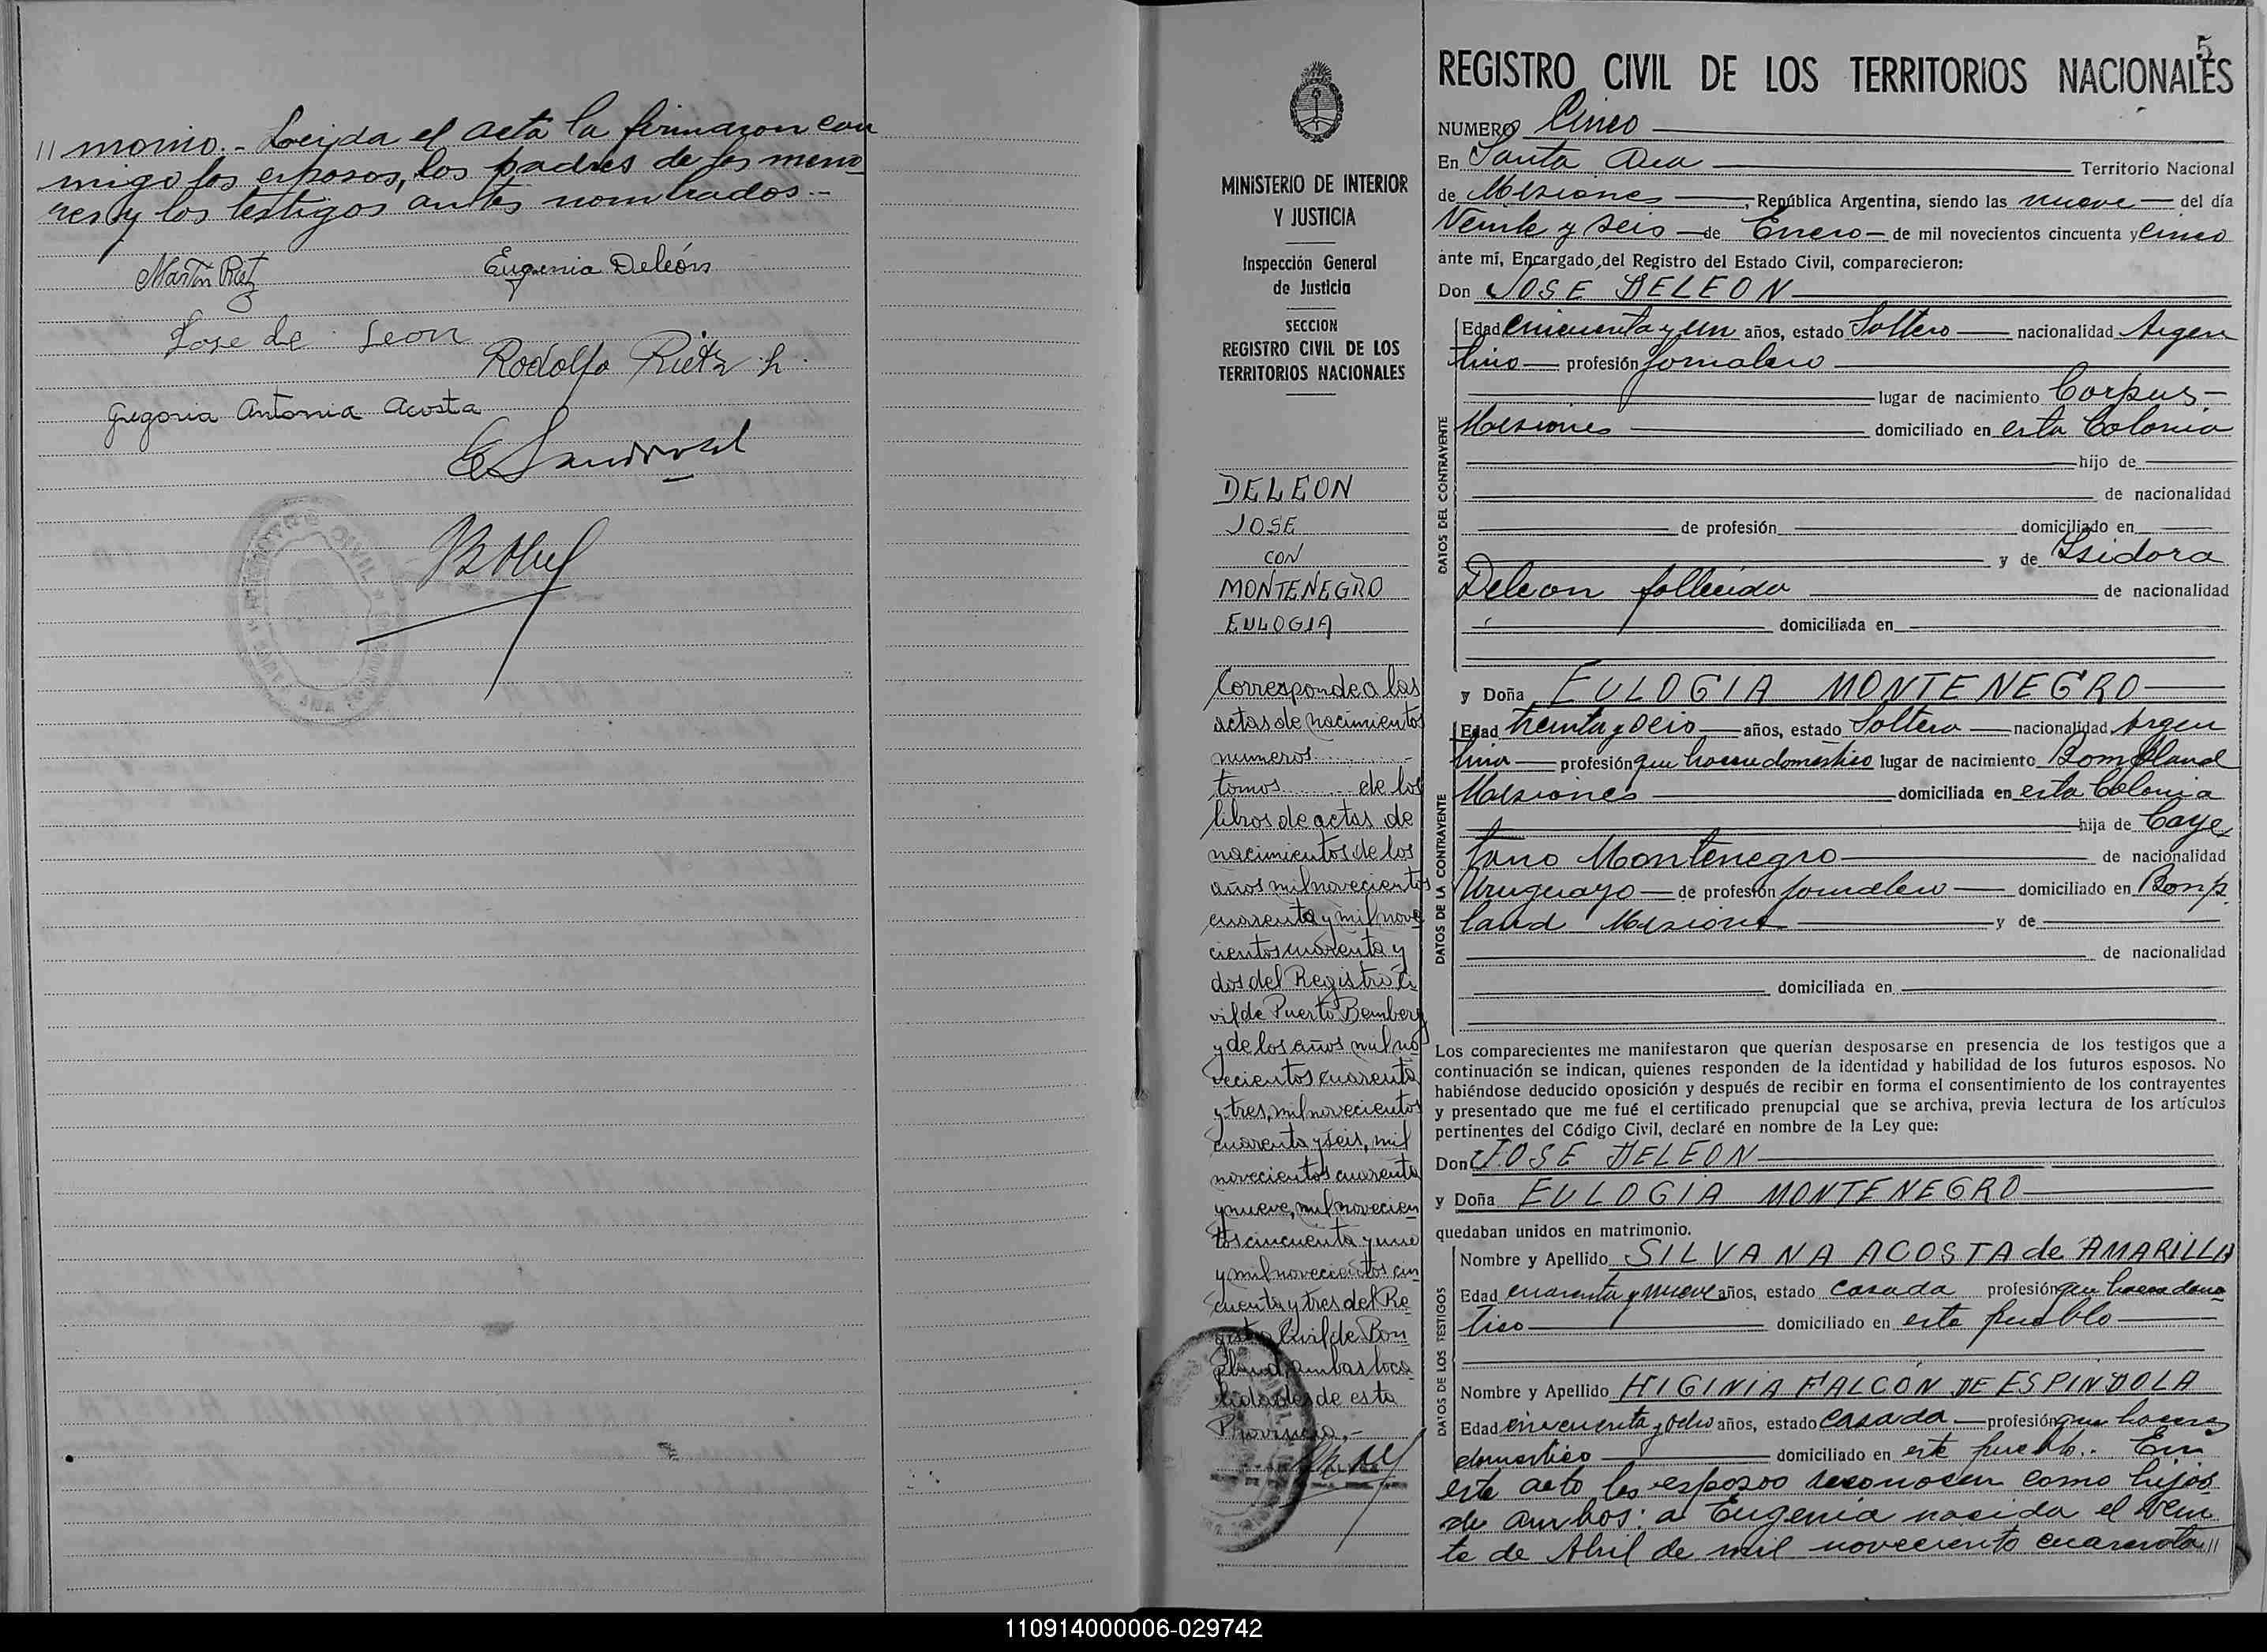 // monio.- Leida el acta la firmaron con
migo los esposos, los padres de los meno
res y los testigos antes nombrados.-
Martin Rietz
Eugenia Deleón
Jose de Leon
Rodolfo Rietz h.
Gregoria Antonia Acosta
E Sandoval
5
REGISTRO CIVIL DE LOS TERRITORIOS NACIONALES
MINISTERIO DE INTERIOR
Y JUSTICIA
Inspección General
de Justicia
SECCION
REGISTRO CIVIL DE LOS
TERRITORIOS NACIONALES
DELEON
JOSE
CON
MONTENEGRO
EULOGIA
Corresponde a las
actas de nacimientos
numeros..........
tomos........ de los
libros de actas de
nacimientos de los
años mil novecientos
cuarenta y mil nove
cientos cuarenta y
dos del Registro Ci
vil de Puerto Bemberg
y de los años mil no
vecientos cuarenta
y tres, mil novecientos
cuarenta y seis, mil
novecientos cuarenta
y nueve, mil novecien
tos cincuenta y uno
y mil novecientos cin
cuenta y tres del Re
gistro Civil de Bon
pland, ambas loca
lidades de esta
Provincia.-
NUMERO Cinco
En Santa Ana Territorio Nacional
de Misiones, República Argentina, siendo las nueve del día
Veinte y seis de Enero de mil novecientos cincuenta y cinco
ante mí, Encargado del Registro del Estado Civil, comparecieron:
Don JOSE DELEON
DATOS DEL CONTRAYENTE
Edad cincuenta y un años, estado Soltero nacionalidad Argen
tino profesión Jornalero
lugar de nacimiento Corpus-
Misiones domiciliado en esta Colonia
hijo de
de nacionalidad
de profesión domiciliado en
y de Isidora
Deleon fallecida de nacionalidad
domiciliada en
y Doña EULOGIA MONTENEGRO
DATOS DE LA CONTRAYENTE
Edad treinta y seis años, estado Soltera nacionalidad Argen
tina profesión que haceres domestico lugar de nacimiento Bompland
Misiones domiciliada en esta Colonia
hija de Caye
tano Montenegro de nacionalidad
Uruguayo de profesión jornalero domiciliado en Bonp
land Misiones y de
de nacionalidad
domiciliada en
Los comparecientes me manifestaron que querían desposarse en presencia de los testigos que a
continuación se indican, quienes responden de la identidad y habilidad de los futuros esposos. No
habiéndose deducido oposición y después de recibir en forma el consentimiento de los contrayentes
y presentado que me fué el certificado prenupcial que se archiva, previa lectura de los artículos
pertinentes del Código Civil, declaré en nombre de la Ley que:
Don JOSE DELEON
y Doña EULOGIA MONTENEGRO
quedaban unidos en matrimonio.
DATOS DE LOS TESTIGOS
Nombre y Apellido SILVANA ACOSTA de AMARILLA
Edad cuarenta y nueve años, estado casada profesión que haceres domes
tico domiciliado en este pueblo
Nombre y Apellido HIGINIA FALCON DE ESPINDOLA
Edad cincuenta y ocho años, estado casada profesión que haceres
domestico domiciliado en este pueblo.- En
este acto los esposos reconocen como hijos
de ambos: a Eugenia nacida el vein
te de Abril de mil novecientos cuarenta //
110914000006-029742